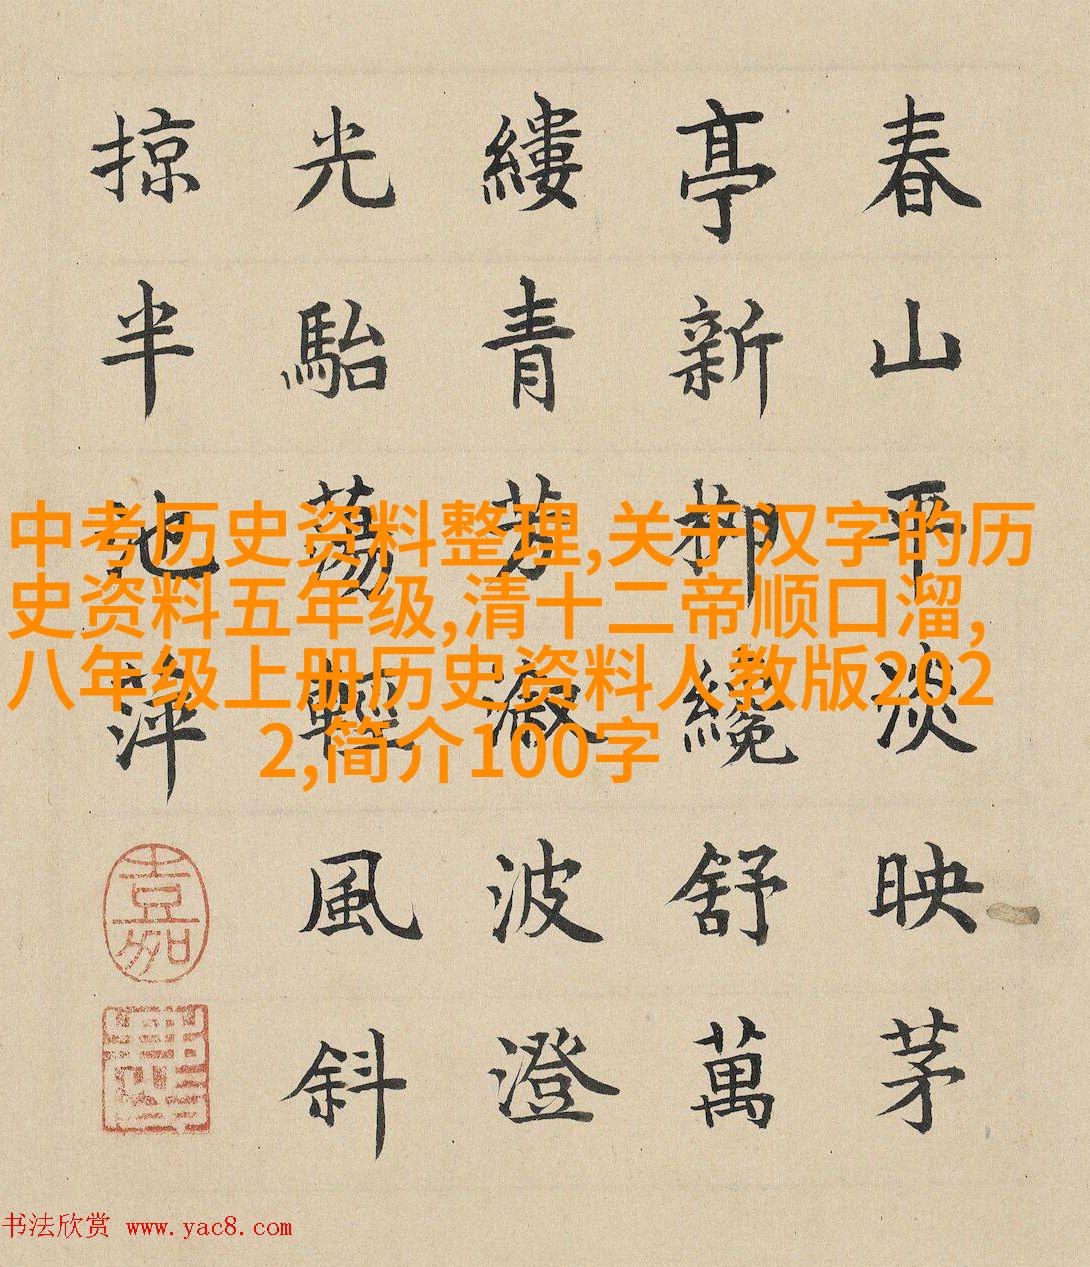 春山平淡映茅
亭新柳纔舒萬
縷青芳漵波澄
光駘蕩輕風斜
掠半池萍
嘉
中考历史资料整理,关于汉字的历
史资料五年级,清十二帝顺口溜,
八年级上册历史资料人教版202
2,简介100字
书法欣赏 www.yac8.com